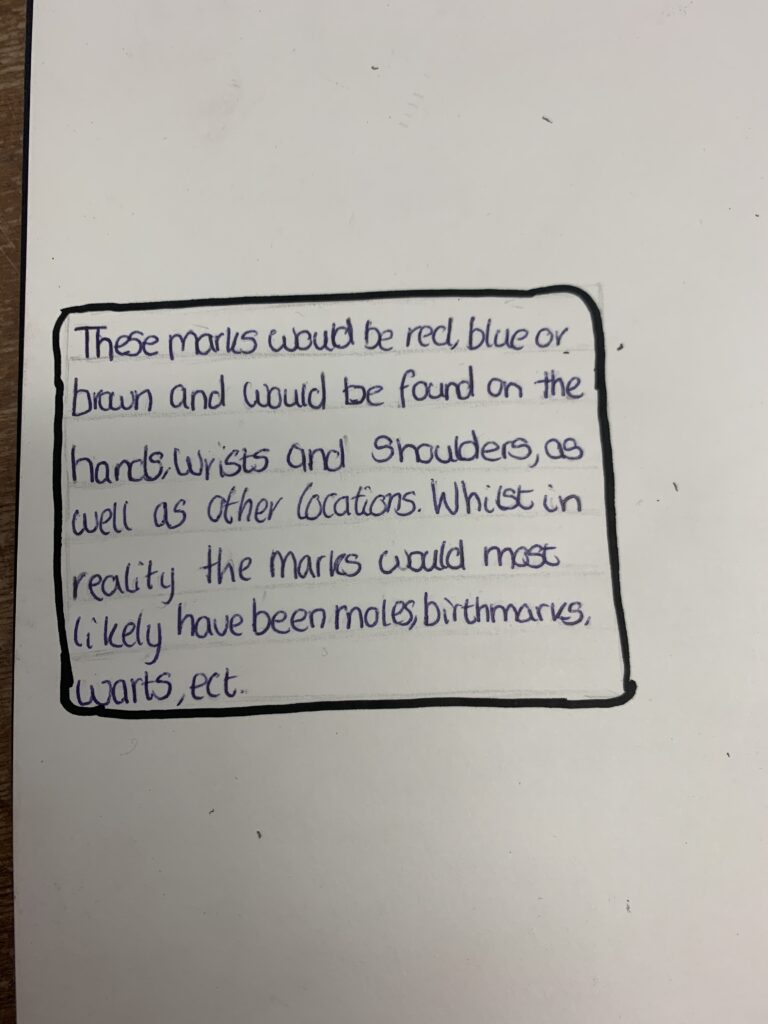 These marks would be red, blue or
brown and would be found on the
hands, wrists and shoulders, as
well as other locations. Whilst in
reality the marks would most
likely have been moles, birthmarks,
warts, ect.